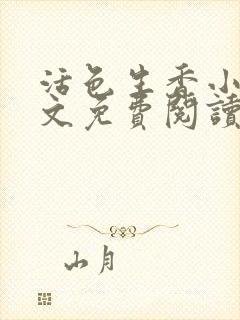 活色生香小
文免費閱讀
山月